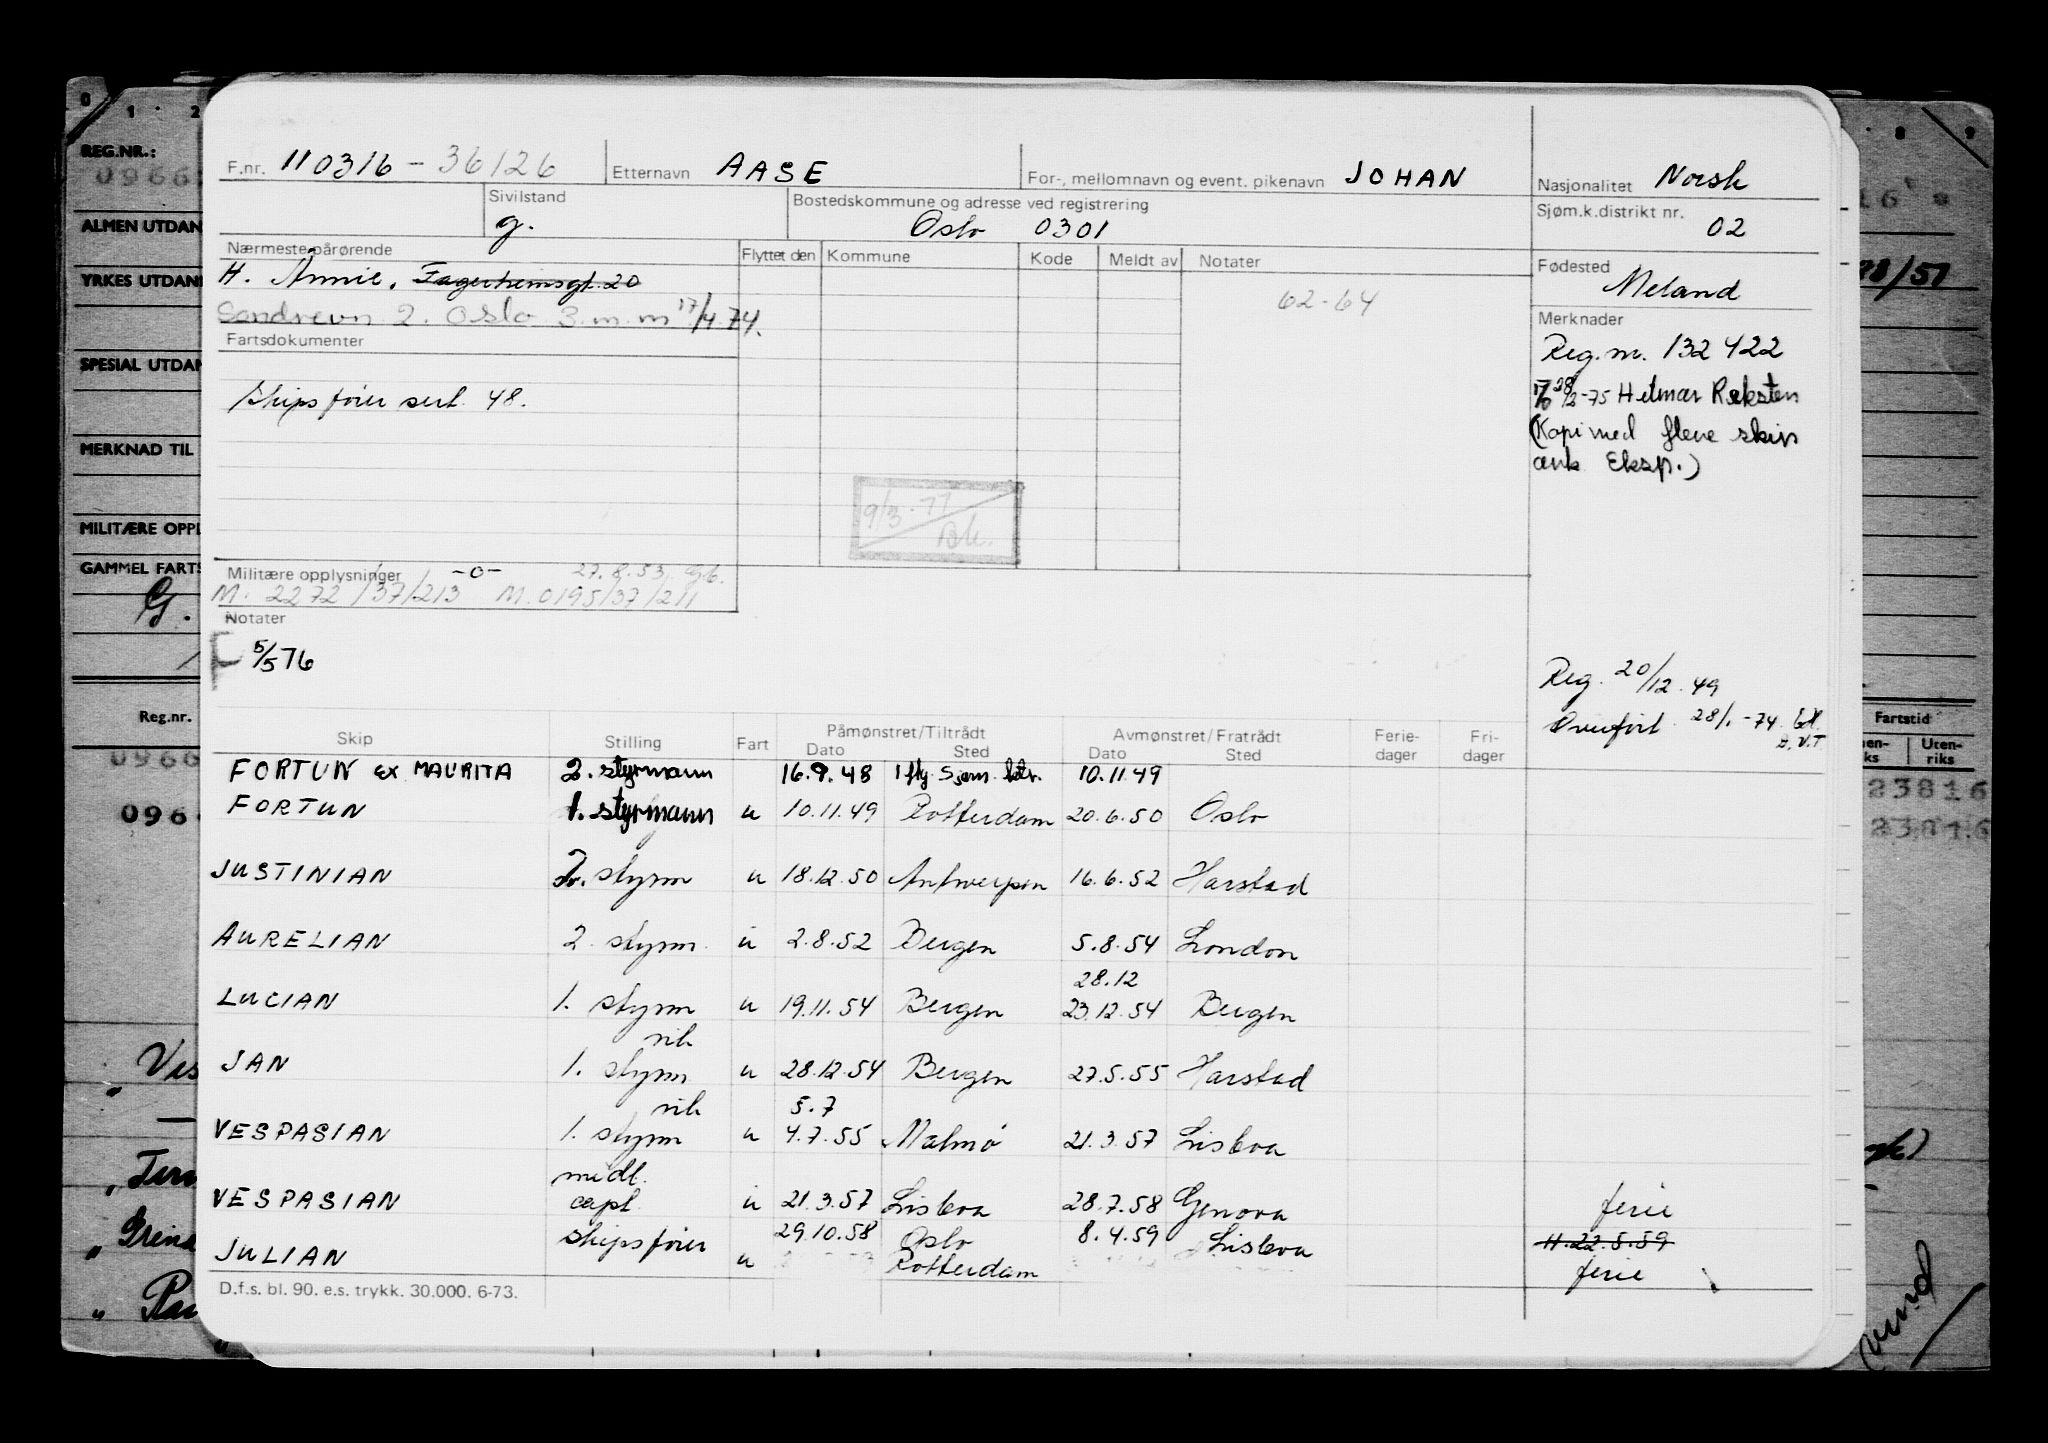 0 1 2 8 9
REG.NR.:
0966
ALMEN UTDAN
YRKES UTDAN
SPESIAL UTDAN
MERKNAD TIL
MILITÆRE OPPL
GAMMEL FARTS
G.
Reg.nr.
0966
096
F.nr. 110316 - 36126 Etternavn AASE For-, mellomnavn og event. pikenavn JOHAN Nasjonalitet Norsk
Sivilstand g. Bostedskommune og adresse ved registrering Oslo 0301 Sjøm.k.distrikt nr. 02
Nærmeste pårørende Flyttet den Kommune Kode Meldt av Notater Fødested Meland
H. Annie, Fagerheimsgt. 20
62-64
2. Oslo 3. m.m 17/4.74.
Merknader
Reg. nr. 132422
28/2-75 Hilmar Reksten
(Kopi med flere skip
ank Eksp.)
Fartsdokumenter
Skipsfører sert. 48.
9/3-77
Militære opplysninger -0- 27.8.53
M. 2272/37/213 M.0195/37/211
Notater
F 5/5 76
Reg. 20/12.49
Overført 28/1-74
Skip Stilling Fart Påmønstret/Tiltrådt Dato Sted Avmønstret/Fratrådt Dato Sted Ferie-dager Fri-dager
FORTUN ex MAURITA 2. styrmann 16.9.48 10.11.49
FORTUN 1. styrmann u 10.11.49 Rotterdam 20.6.50 Oslo
JUSTINIAN 2. styrm u 18.12.50 Antwerpen 16.6.52 Harstad
AURELIAN 2. styrm. u 2.8.52 Bergen 5.8.54 London
28.12
LUCIAN 1. styrm u 19.11.54 Bergen 23.12.54 Bergen
vik
JAN 1. styrm u 28.12.54 Bergen 27.5.55 Harstad
vik 5.7
VESPASIAN 1. styrm u 4.7.55 Malmö 21.3.57 Lisboa
midl.
VESPASIAN capt. u 21.3.57 Lisboa 28.7.58 Genova ferie
skipsfører 29.10.58 Oslo 8.4.59 Lisboa H. 22.5.59
JULIAN u Rotterdam ferie
D.f.s. bl. 90. e.s. trykk. 30.000. 6-73.
Fartstid
Uten-
riks
23816
23816